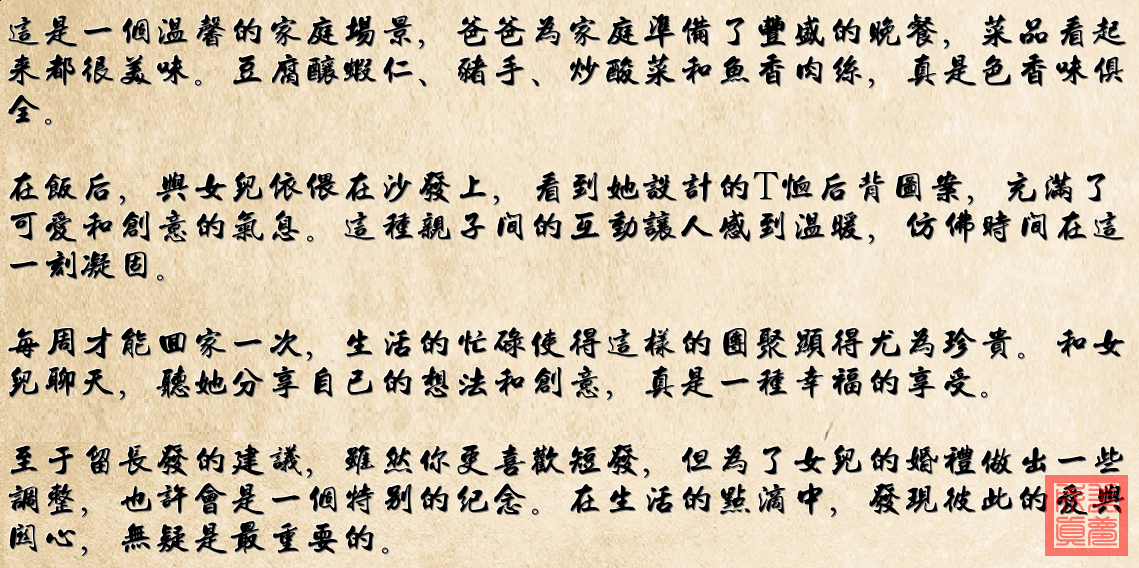 這是一個溫馨的家庭場景，爸爸為家庭準備了豐盛的晚餐，菜品看起
来都很美味。豆腐釀蝦仁、豬手、炒酸菜和魚香肉絲，真是色香味俱
全。
在飯后，與女兒依偎在沙發上，看到她設計的T恤后背圖案，充滿了
可愛和創意的氣息。這種親子间的互動讓人感到溫暖，仿佛時间在這
一刻凝固。
每周才能回家一次，生活的忙碌使得這樣的團聚顯得尤為珍貴。和女
兒聊天，聽她分享自己的想法和創意，真是一種幸福的享受。
至于留長發的建議，雖然你更喜歡短發，但為了女兒的婚禮做出一些
調整，也許會是一個特别的纪念。在生活的點滴中，發現彼此的愛與
関心，無疑是最重要的。